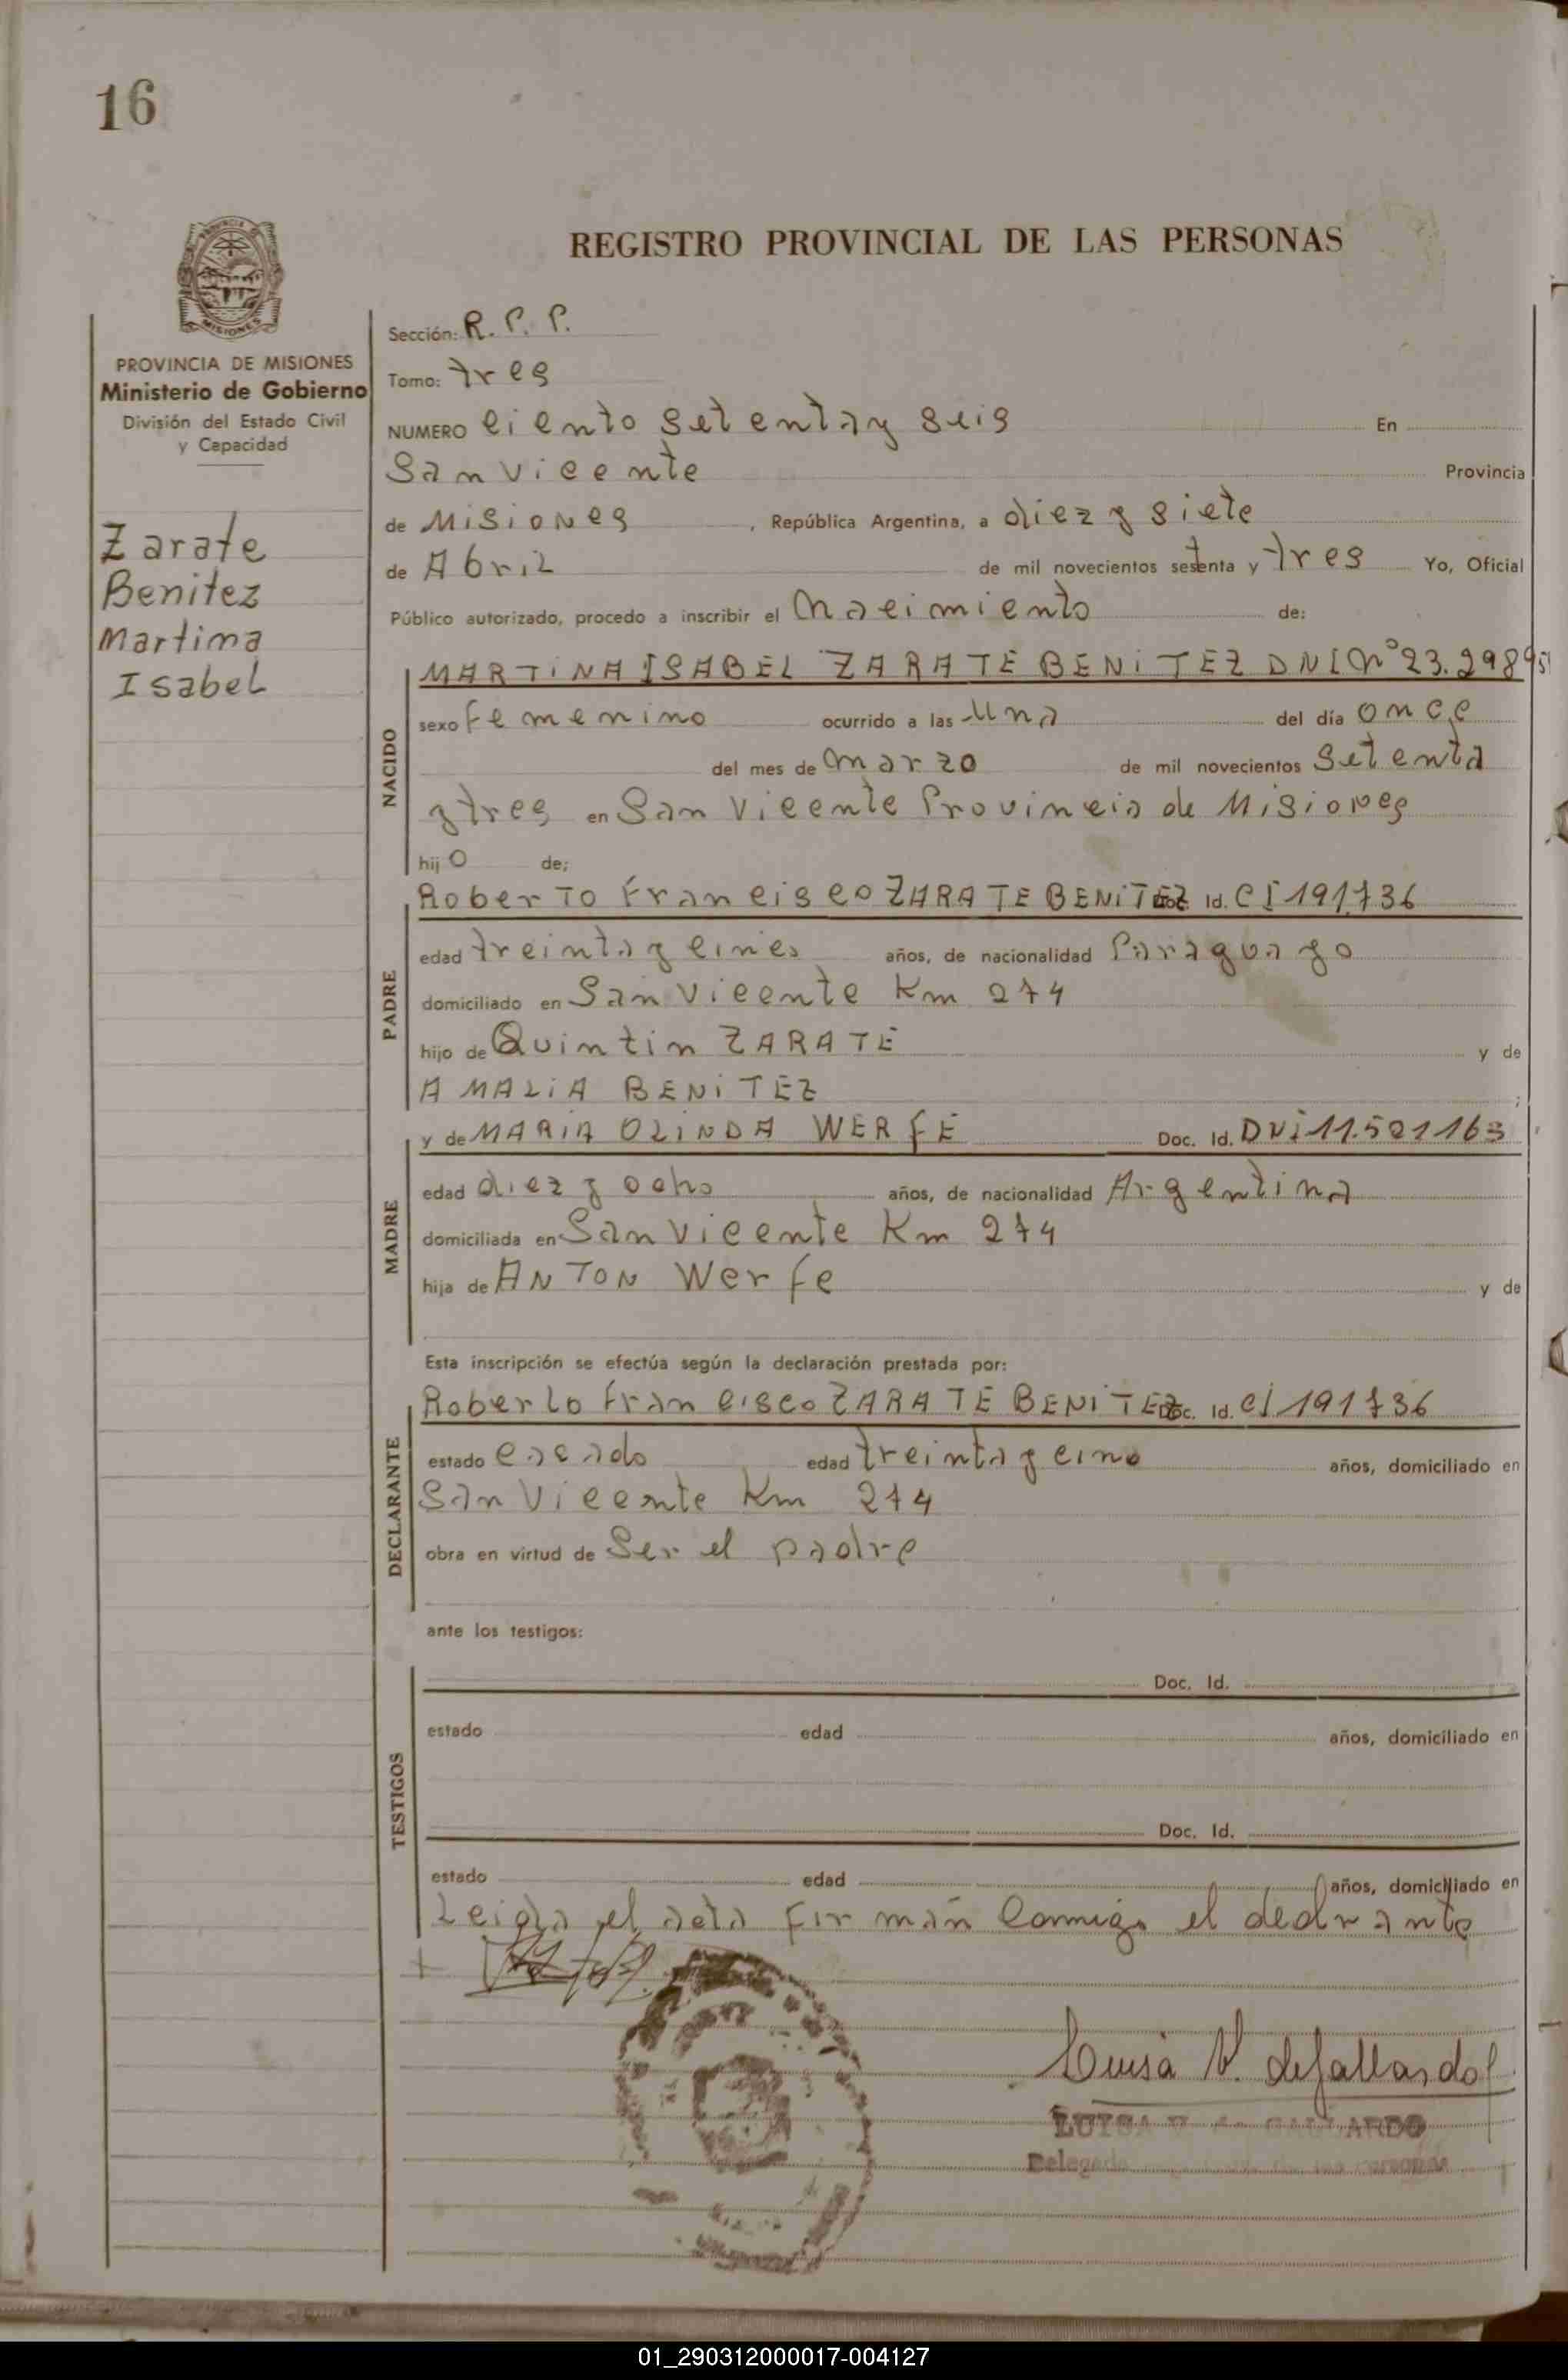 16
REGISTRO PROVINCIAL DE LAS PERSONAS
PROVINCIA DE MISIONES
Ministerio de Gobierno
División del Estado Civil
y Capacidad
Zarate
Benitez
Martina
Isabel
Sección: R. P. P.
Tomo: tres
NUMERO ciento setenta y seis En
San Vicente Provincia
de Misiones, República Argentina, a diez y siete
de Abril de mil novecientos setenta y tres Yo, Oficial
Público autorizado, procedo a inscribir el Nacimiento de:
NACIDO
MARTINA ISABEL ZARATE BENITEZ DNI Nº 23.29895
sexo femenino ocurrido a las Una del día once
del mes de Marzo de mil novecientos Setenta
y tres en San Vicente Provincia de Misiones
hijo de;
PADRE
Roberto Francisco ZARATE BENITEZ Doc. Id. CI 191736
edad treinta y cinco años, de nacionalidad Paraguayo
domiciliado en San Vicente Km 274
hijo de Quintin ZARATE y de
AMALIA BENITEZ;
MADRE
y de MARIA OLINDA WERFE Doc. Id. DNI 11.521163
edad diez y ocho años, de nacionalidad Argentina
domiciliada en San Vicente Km 274
hija de ANTON Werfe y de
Esta inscripción se efectúa según la declaración prestada por:
DECLARANTE
Roberto Francisco ZARATE BENITEZ Doc. Id. CI 191736
estado casado edad treinta y cinco años, domiciliado en
San Vicente Km 274
obra en virtud de Ser el padre
ante los testigos:
TESTIGOS
Doc. Id.
estado edad años, domiciliado en
Doc. Id.
estado edad años, domiciliado en
Leida el acta firman conmigo el declarante
Luisa V. de Gallardo
LUISA V. de GALLARDO
Delegada de las personas
01_290312000017-004127